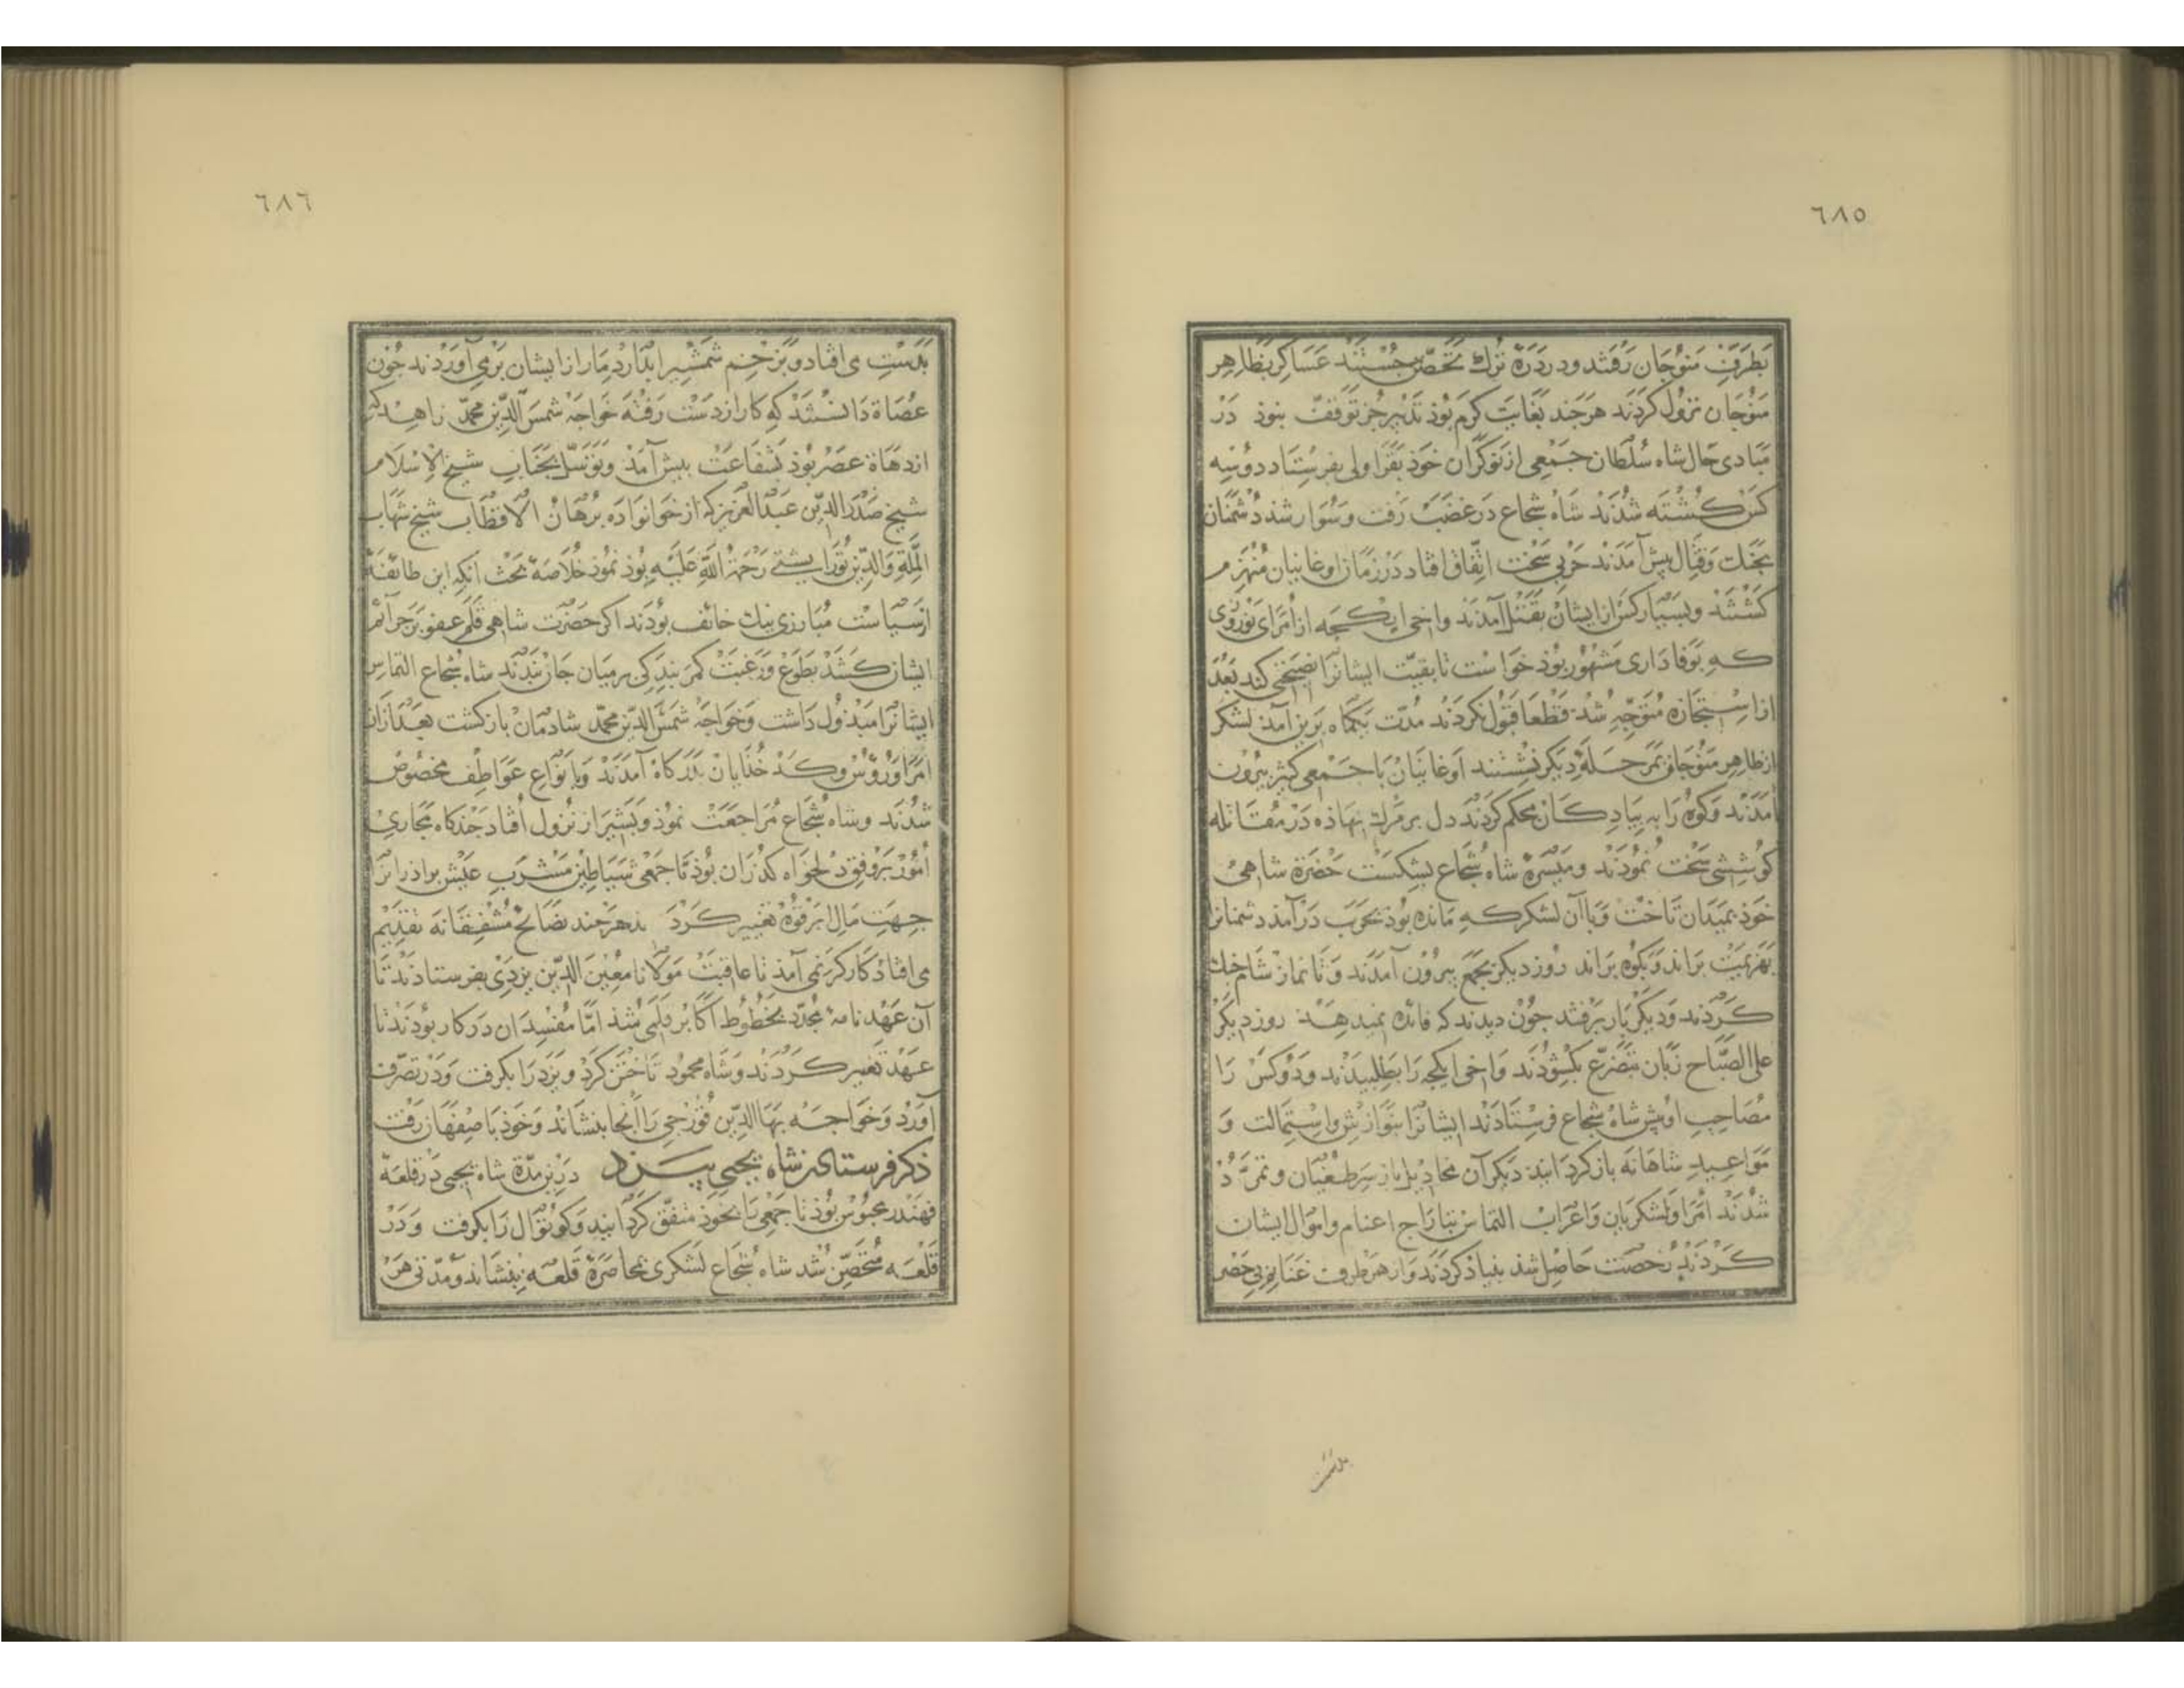 ٦٨٥
بطرف منوجان رفتند ودر درّهٔ ترك تحصّن جستند عساكر بظاهر
منوجان نزول كردند هرجند بغايت كرم بوذ تدبير جز توقف نبوذ در
مبادى حال شاه سلطان جمعى از نوكران خوذ بقراولى بفرستاد دو سه
كس كشته شدند شاه شجاع در غضب رفت وسوار شد دشمنان
بجنك وقتال پيش آمدند حربى سخت اتفاق افتاد در زمان اوغانيان منهزم
كشتند وبسيار كس از ايشان بقتل آمدند واخى ايكجه از امراى نوروزى
كه بوفادارى مشهور بوذ خواست تا بقيّت ايشانرا نصيحتى كند بعد
از استجازه متوجّه شد قطعا قبول نكردند مدّت يكماه برين آمد لشكر
از ظاهر منوجان بمرحلهٔ ديكر نشستند اوغانيان با جمعى كثير بيرون
آمدند وكوه را به پيادكان محكم كردند دل بر مرك نهاذه در مقاتله
كوششى سخت نموذند وميسرهٔ شاه شجاع بشكست حضرة شاهى
خوذ بميدان تاخت وباآن لشكر كه مانده بوذ بحرب درآمذ دشمنانرا
بهزيمت براند وبكوه براند روز ديكر بجمع بيرون آمدند وتا نماز شام جنك
كردند وديكر بار برفتند جون ديدند كه فائده نميدهد روز ديكر
على الصّباح زبان بتضرّع بكشوذند واخى ايكجه را بطلبيدند ودو كس را
مصاحب او پيش شاه شجاع فرستادند ايشانرا بنوازش واستمالت و
مواعيد شاهانه باز كردانيد ديكر آن مخاذيل باز سر طغيان وتمرّد
شدند امرا ولشكريان واعراب التماس تاراج اغنام واموال ايشان
كردند رخصت حاصل شذ بنياذ كردند واز هر طرف غنايم بى حصر
بدست
٦٨٦
بدست مى افتاد وبزخم شمشير آبدار دمار از ايشان برمى آوردند جون
عصاة دانستند كه كار از دست رفته خواجه شمس الدّين محمّد زاهد كه
از دهاة عصر بوذ بشفاعت پيش آمذ وتوسّل بجناب شيخ الاسلام
شيخ صدر الدّين عبد العزيز كه از خوانواده برهان الاقطاب شيخ شهاب
الملّة والدّين تورابشتى رحمة الله عليه بوذ نموذ خلاصهٔ بحث انكه اين طائفه
از سياست مبارزى نيك خائف بوذند اكر حضرت شاهى قلم عفو بر جرائم
ايشان كشد بطوع ورغبت كمر بندكى بر ميان جان بندند شاه شجاع التماس
ايشانرا مبذول داشت وخواجه شمس الدّين محمّد شادمان بازكشت بعد ازان
امرا ورؤس وكدخذايان بدركاه آمدند وبانواع عواطف مخصوص
شدند وشاه شجاع مراجعت نموذ وبشيراز نزول افتاد جندكاه مجارى
امور بر وفق دلخواه كذران بوذ تا جمعى شياطين مشرب عيش براذرانرا
جهت مال ابرقوه تغيير كرد هرجند نصائح مشفقانه تقديم
مى افتاذ كاركر نمى آمذ تا عاقبت مولانا معين الدّين يزدى بفرستادند تا
آن عهدنامه مجدّد بخطوط اكابر قلمى شذ امّا مفسدان در كار بوذند تا
عهد تغيير كردند وشاه محمود تاختن كرد ويزد را بكرفت ودر تصرّف
آورد وخواجه بهاالدّين قورجى را آنجا بنشاند وخوذ باصفهان رفت
ذكر فرستادن شاه يحيى بيزد درين مدّة شاه يحيى در قلعهٔ
قهندر محبوس بوذ تا جمعى را بخوذ متفق كردانيد وكوتوال را بكرفت ودر
قلعه متحصّن شد شاه شجاع لشكرى بمحاصرهٔ قلعه بنشاند ومدّتى هر